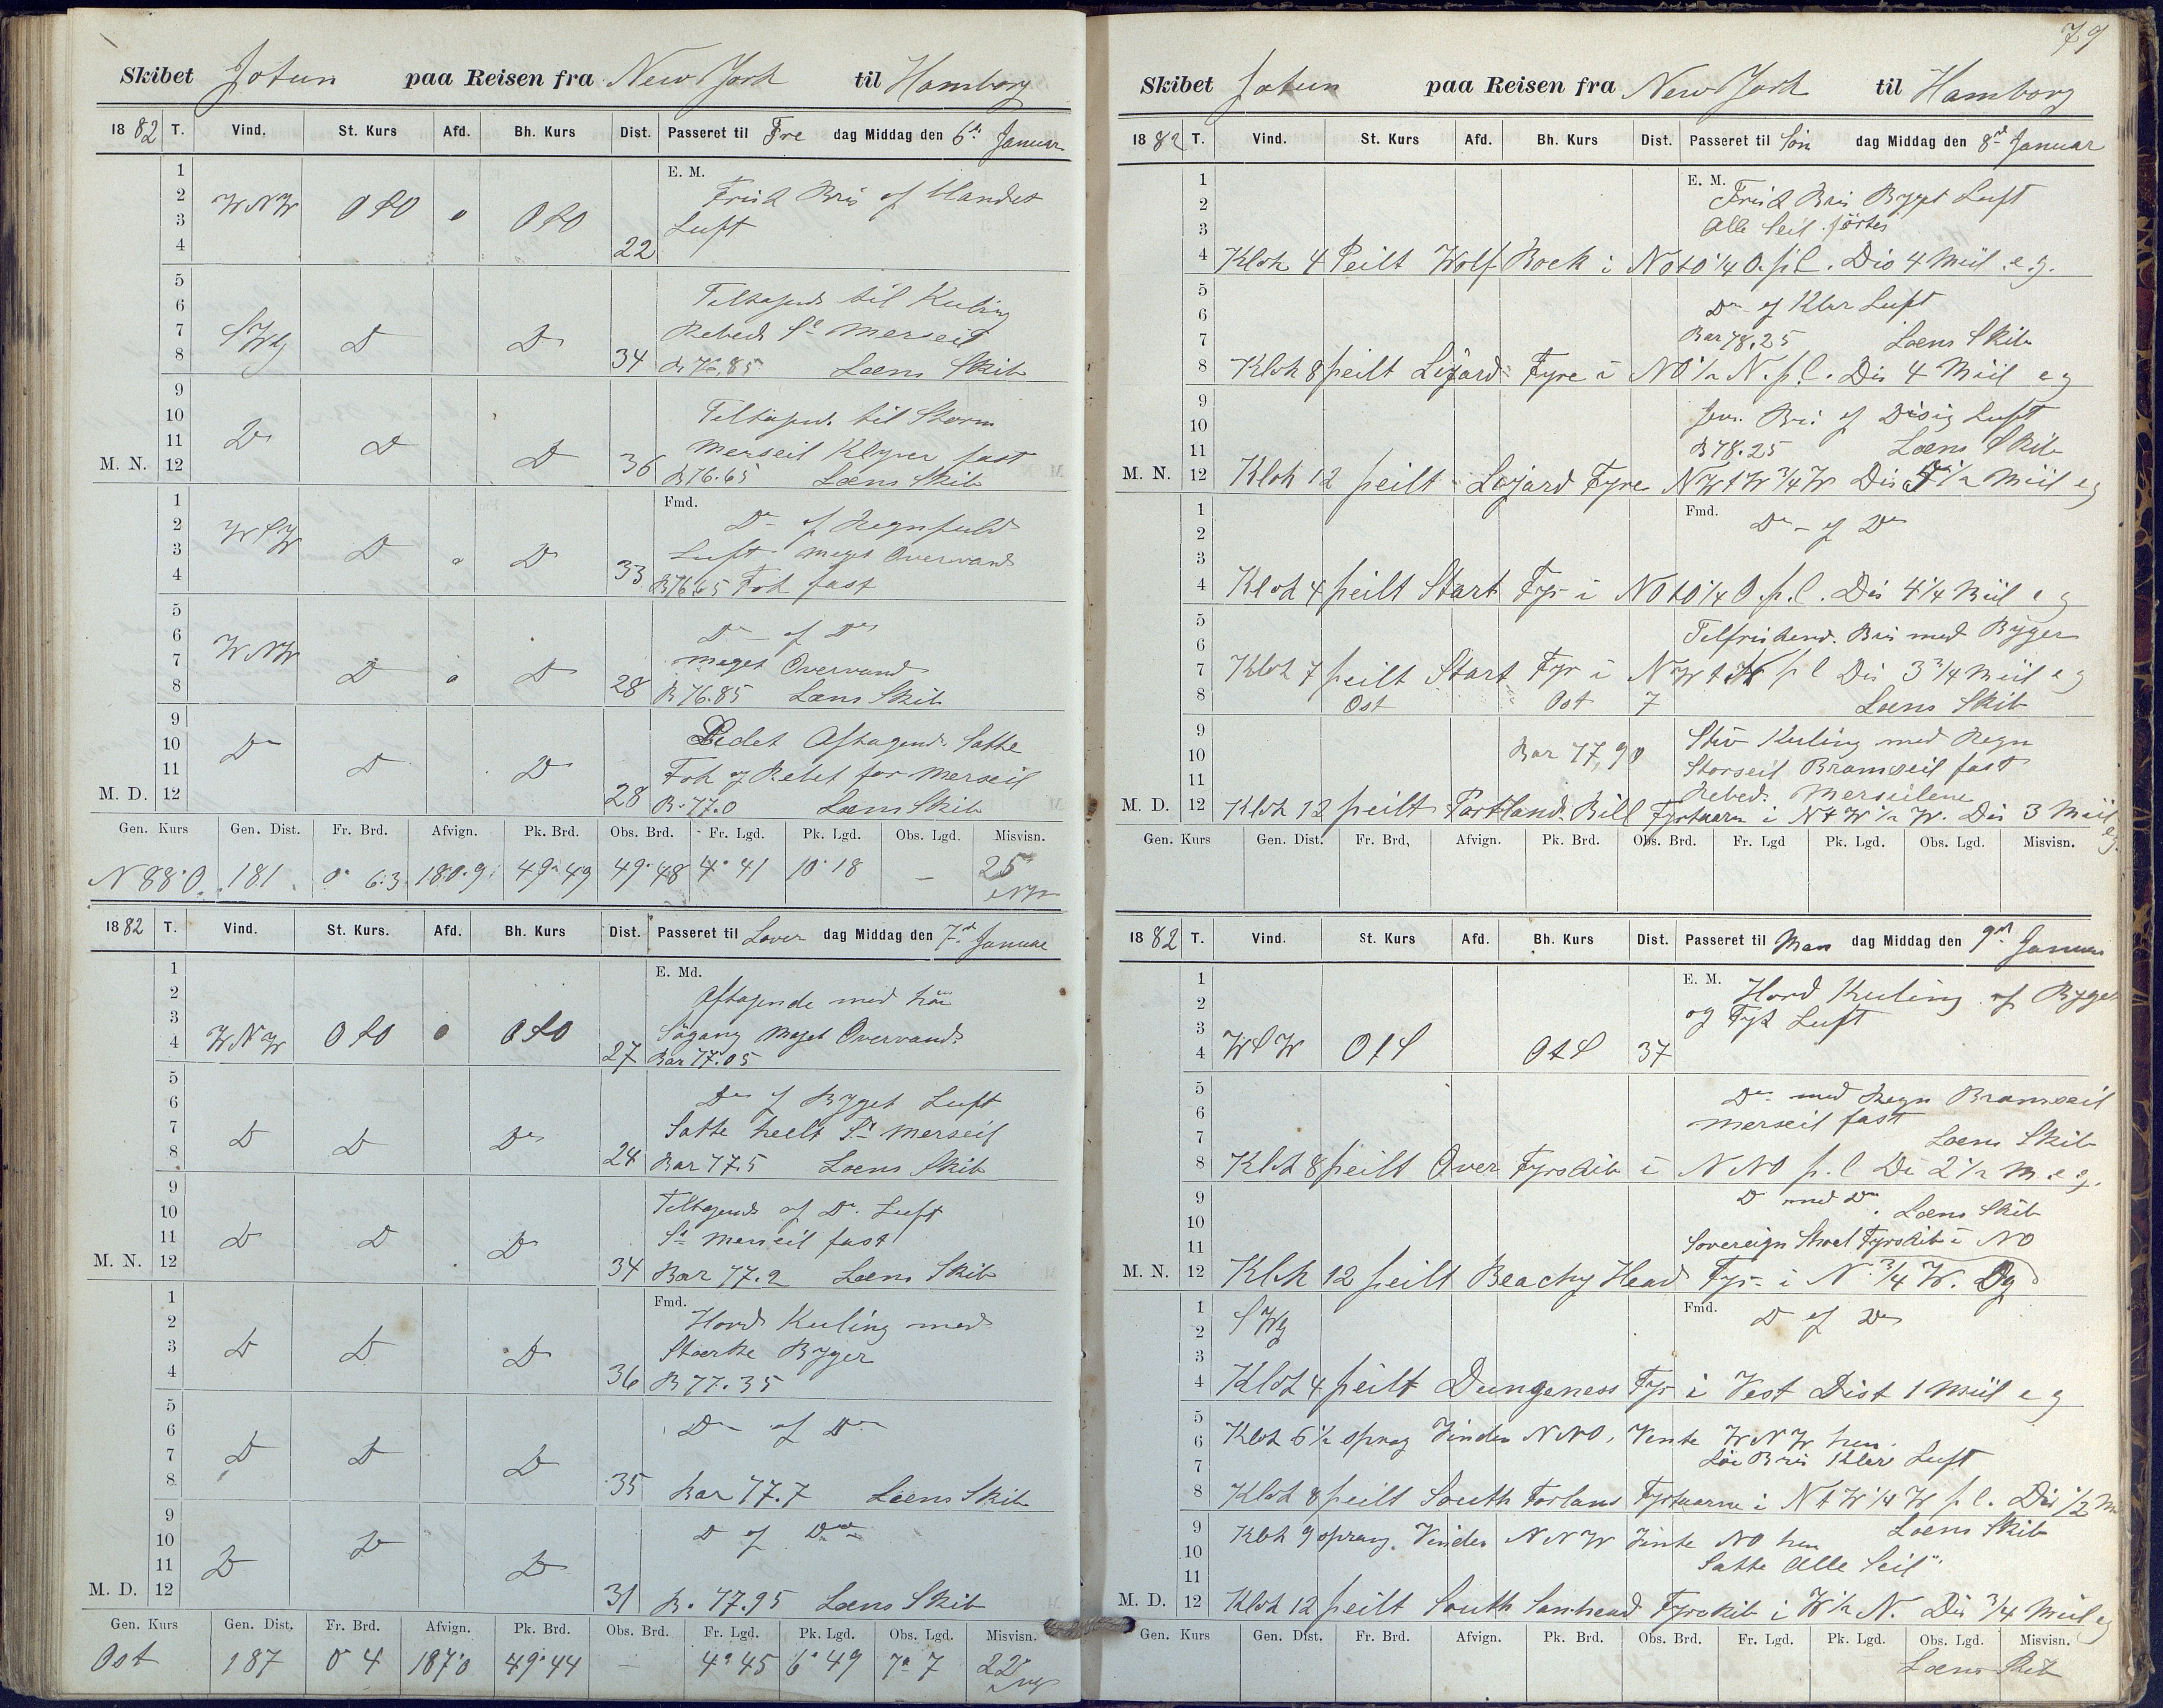 Skibet Jotun paa Reisen fra New York til Hamborg
18 82 T. Vind. St. Kurs Afd. Bh. Kurs Dist. Passeret til Fre dag Middag den 6te Januar
E. M.
1
2
3
4
WNW OSO 0 OSO 22 Frisk Bris og blandet
Luft
5
6
7
8
SWlg D D 34 Tiltagende til Kuling
Rebede St Merseil
B 76,85 Læns Skib
9
10
11
M. N. 12
D D D 36 Tiltagend. til Storm
Merseil Klyver fast
B 76.65 Læns Skib
Fmd.
1
2
3
4
WSW D 0 D 33 Do og Regnfuld
Luft meget Overvand
B 76.65 Fok fast
5
6
7
8
WNW D 0 D 28 Do og Do
meget Overvand
B 76.85 Læns Skib
9
10
11
M. D. 12
Do D D 28 Aftagend. Satte
Fok og Rebet for Merseil
B. 77.0 Læns Skib
Gen. Kurs Gen. Dist. Fr. Brd. Afvign. Pk. Brd. Obs. Brd. Fr. Lgd. Pk. Lgd. Obs. Lgd. Misvisn.
N 88° O. 181 0° 6.3 180.9 49° 49 49° 48 4° 41 10° 18 — 25
18 82 T. Vind. St. Kurs. Afd. Bh. Kurs Dist. Passeret til Løver dag Middag den 7de Januar
E. Md.
1
2
3
4
WNW OSO 0 OSO 27 Aftagende med høi
Søgang Meget Overvand
Bar 77.05
5
6
7
8
D D Do 24 Do og Byget Luft
Satte heelt St Merseil
Bar 77.5 Læns Skib
9
10
11
M. N. 12
D D D 34 Tiltagende og Do. Luft
St Merseil fast
Bar 77.2 Læns Skib
Fmd.
1
2
3
4
D D D 36 Hord Kuling med
Stærke Byger
B 77.35
5
6
7
8
D D D 35 Do og Do
Bar 77.7 Læns Skib
9
10
11
M. D. 12
D D D 31 D og Do
B. 77.95 Læns Skib
Gen. Kurs Gen. Dist. Fr. Brd. Afvign. Pk. Brd. Obs. Brd. Fr. Lgd. Pk. Lgd. Obs. Lgd. Misvisn.
Ost 187 0 4 187.0 49° 44 — 4° 45 6° 49 7° 7 22
79
Skibet Jotun paa Reisen fra New York til Hamborg
18 82 T. Vind. St. Kurs Afd. Bh. Kurs Dist. Passeret til Søn dag Middag den 8de Januar
E. M. Frisk Bris Byget Luft
Alle Seil førtes
1
2
3
4 Klok 4 Peilt Wolf Rock i NOtO 1/4 O. p. C. Dis 4 Miil e.g.
5
6
7
Do og Klar Luft
Bar 78.25 Læns Skib
8 Klok 8 peilt Lizard Fyre i NO 1/2 N. p. C. Dis 4 Miil e g
9
10
11
Jevn. Bris og Disig Luft
B 78.25 Læns Skib
M. N. 12 Klok 12 peilt Lizard Fyre NWtW 3/4 W Dis 1/2 Miil e g
Fmd.
1
2
3
Do - og Do
4 Klok 4 peilt Start Fyr i NOtO 1/4 O. p. C. Dis 4 1/4 Miil e g
5
6
Tilfriskend. Bris med Byger
7 Klok 7 peilt Start Fyr i NWtW p C Dis 3 3/4 Miil e g
8 Ost Ost 7 Læns Skib
9
10
11
Bar 77,90 Stiv Kuling med Regn
Storseil Bramseil fast
Rebed. Merseilene
M. D. 12 Klok 12 peilt Portland Bill Fyrtaarn i NtW 1/2 W. Dis 3 Miil
eg.
Gen. Kurs Gen. Dist. Fr. Brd, Afvign. Pk. Brd. Obs. Brd. Fr. Lgd Pk. Lgd. Obs. Lgd. Misvisn.
18 82 T. Vind. St. Kurs Afd. Bh. Kurs Dist. Passeret til Man dag Middag den 9de Januar
E. M. Hord Kuling og Byger
og Tyk Luft
1
2
3
4
WSW OtS OtS 37
5
6
7
Do med Regn Bramseil
Merseil fast
Læns Skib
8 Klok 8 peilt Over Fyrskib i NNO p. C Di 2 1/2 M e g.
9
10
11
D med Do. Læns Skib
Sovereign Shoel Fyrskib i NO
M. N. 12 Klok 12 peilt Beachy Head Fyr i N 3/4 W. Og
Fmd.
1
2
3
SWlg D og Do
4 Klok 4 peilt Dungeness Fyr i Vest Dist 1 Miil e g
5
6
7
Klok 6 1/2 sprag Vinden NNO, Vente WNW hen.
Løi Bris Klar Luft
8 Klok 8 peilt South Forland Fyrtaarn i NtW 1/4 W p C. Dis 1/2 M
9
10
11
Klok 9 sprang. Vinden NNW Vente NO hen Læns Skib
Satte alle Seil
M. D. 12 Klok 12 peilt South Sanhead Fyrskib i W 1/2 N. Dis 3/4 Miil eg
Gen. Kurs Gen. Dist. Fr. Brd. Afvign. Pk. Brd. Obs. Brd. Fr. Lgd. Pk. Lgd. Obs. Lgd. Misvisn.
Læns Skib